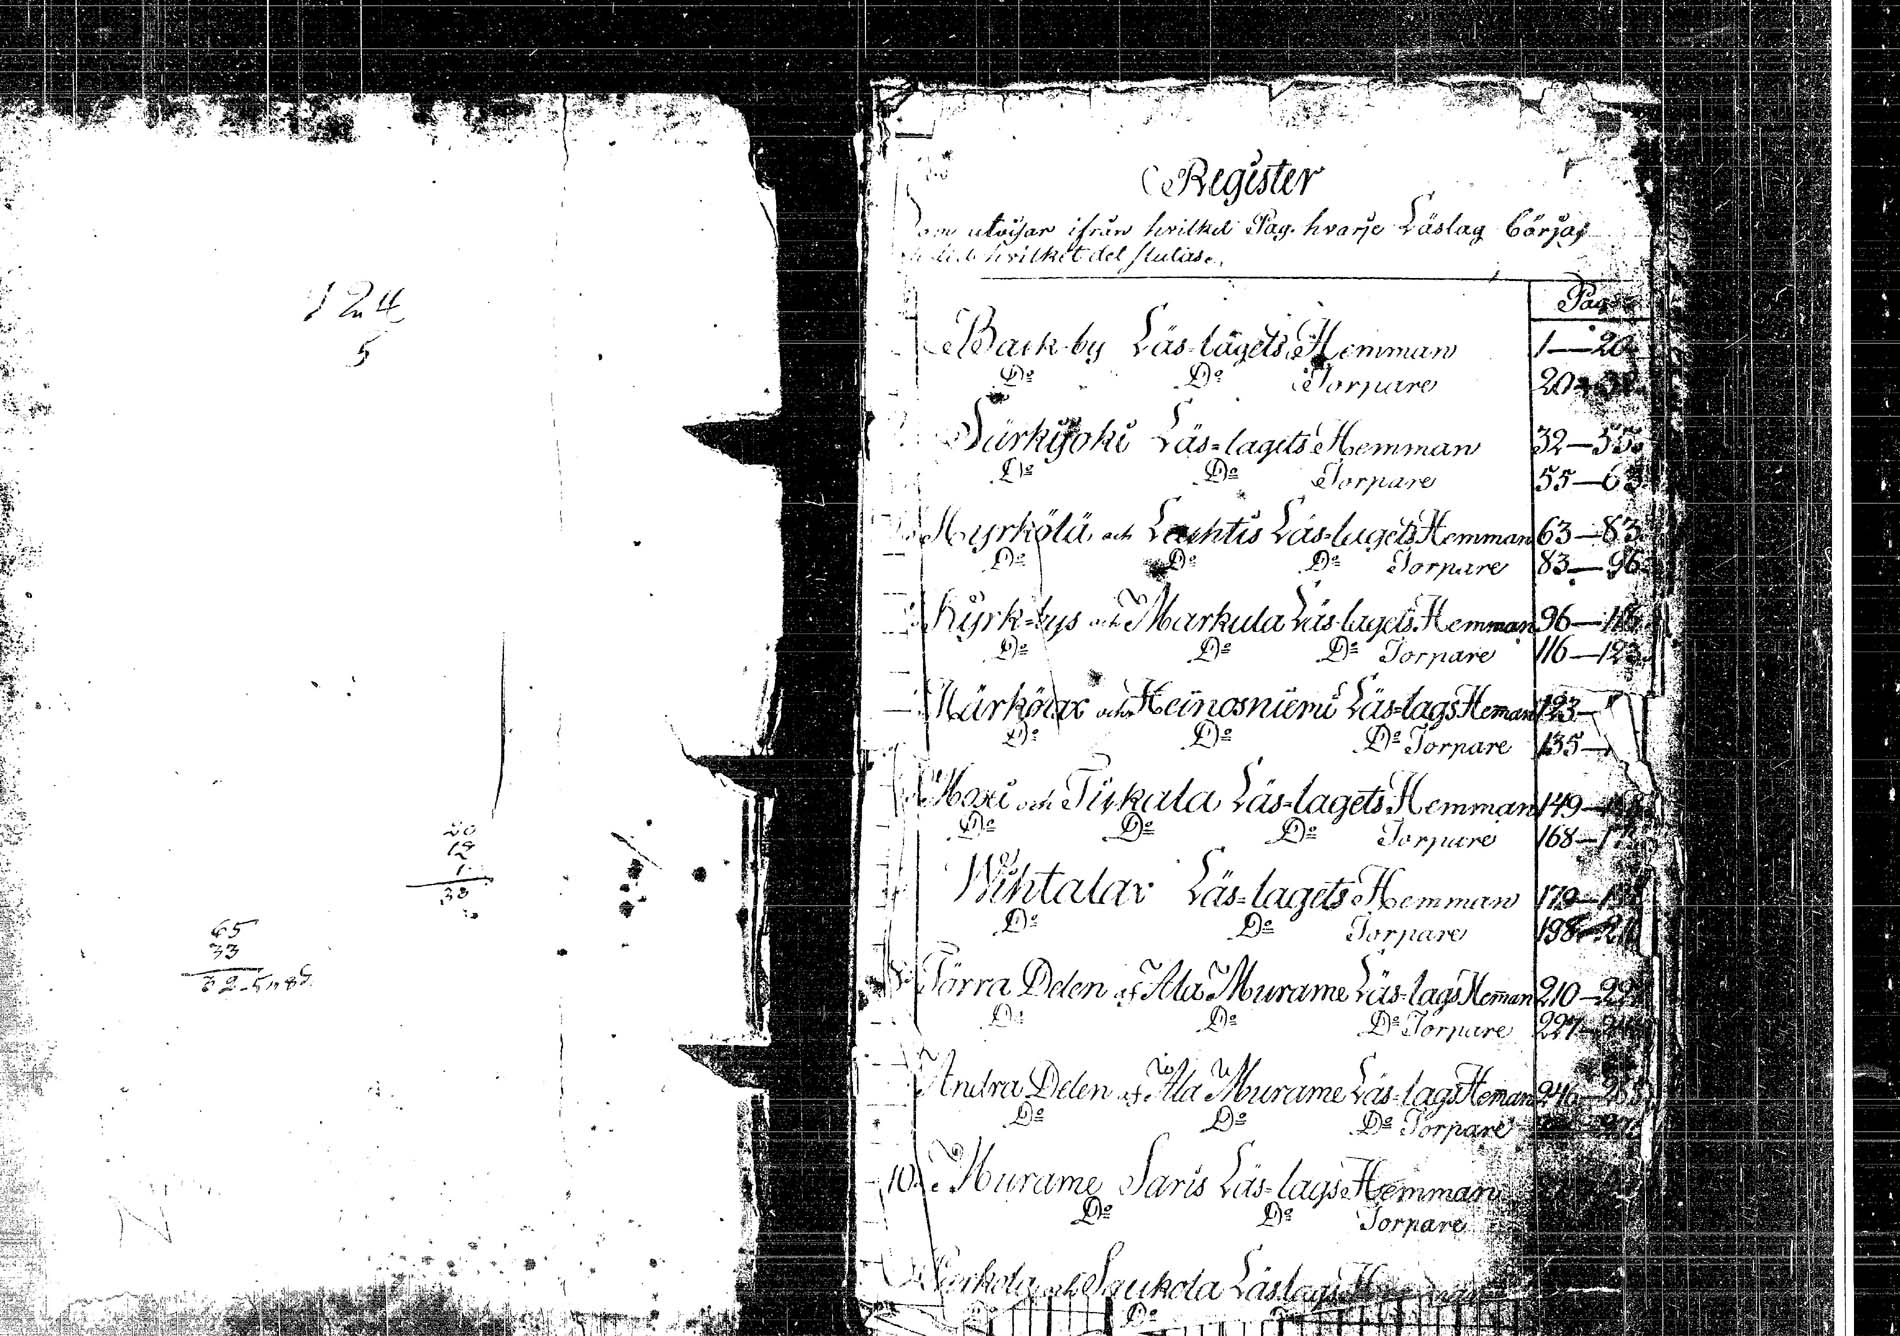 124
5
20
12
1
33
65
33
Register
Som utvisar ifrån hvilket Pag. hvarje Läslag börjas
hvilket det slutas.
Pag.
Back-by Läs-lagets Hemman 1—20
Do Do Torpare 20—32
Särkijoki Läs-lagets Hemman 32—55
Do Do Torpare 55—63
Hyrkölä och Lachtis Läs-lagets Hemman 63—83
Do Do Do Torpare 83—96
Kyrk-bys och Markula Läs-lagets Hemman 96—116
Do Do Do Torpare 116—123
och Heinosniemi Läs-lags Heman 123—
Do Do Do Torpare 135—
och Tirkala Läs-lagets Hemman 149—
Do Do Do Torpare 168—
Wihtalax Läs-lagets Hemman 179—
Do Do Torpare 198—
Förra Delen af Ala Murame Läs-lags Heman 210—
Do Do Do Torpare 227—
Andra Delen af Ala Murame Läs-lags Heman 246—
Do Do Do Torpare
10. Murame Saris Läs-lags Hemman
Do Do Torpare
och Saukola Läslags
Do